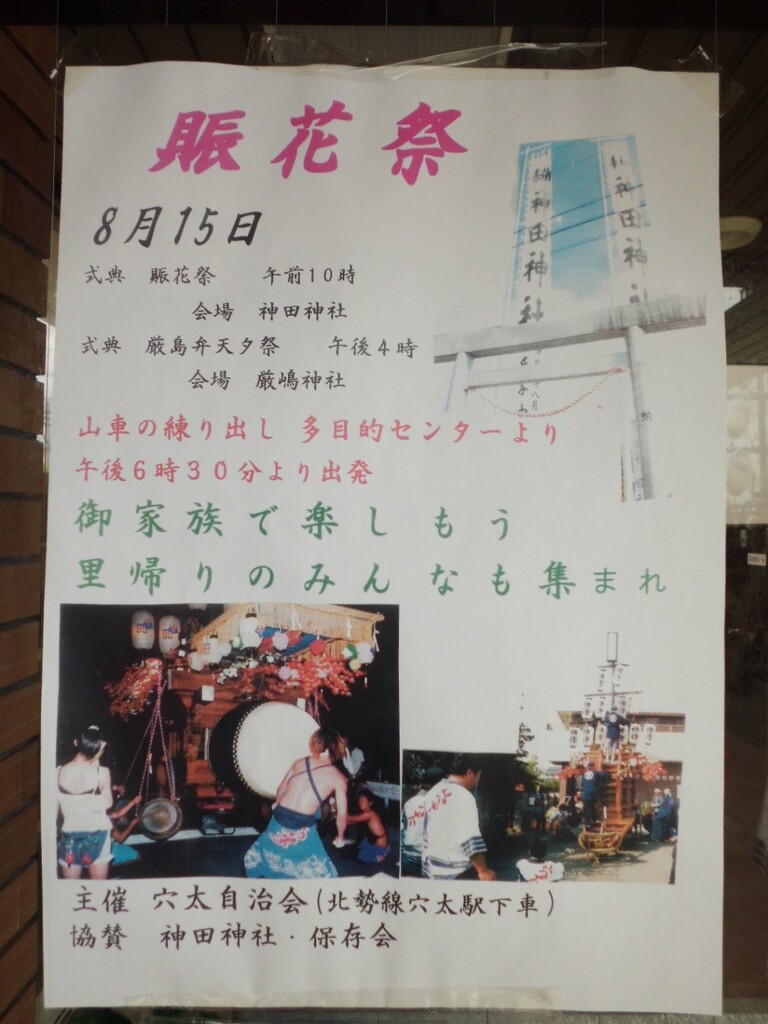 賑花祭
8月15日
式典 賑花祭 午前10時
会場 神田神社
式典 厳島弁天夕祭 午後4時
会場 厳嶋神社
山車の練り出し 多目的センターより
午後6時30分より出発
御家族で楽しもう
里帰りのみんなも集まれ
神田神社
神田神
主催 穴太自治会(北勢線穴太駅下車)
協賛 神田神社・保存会